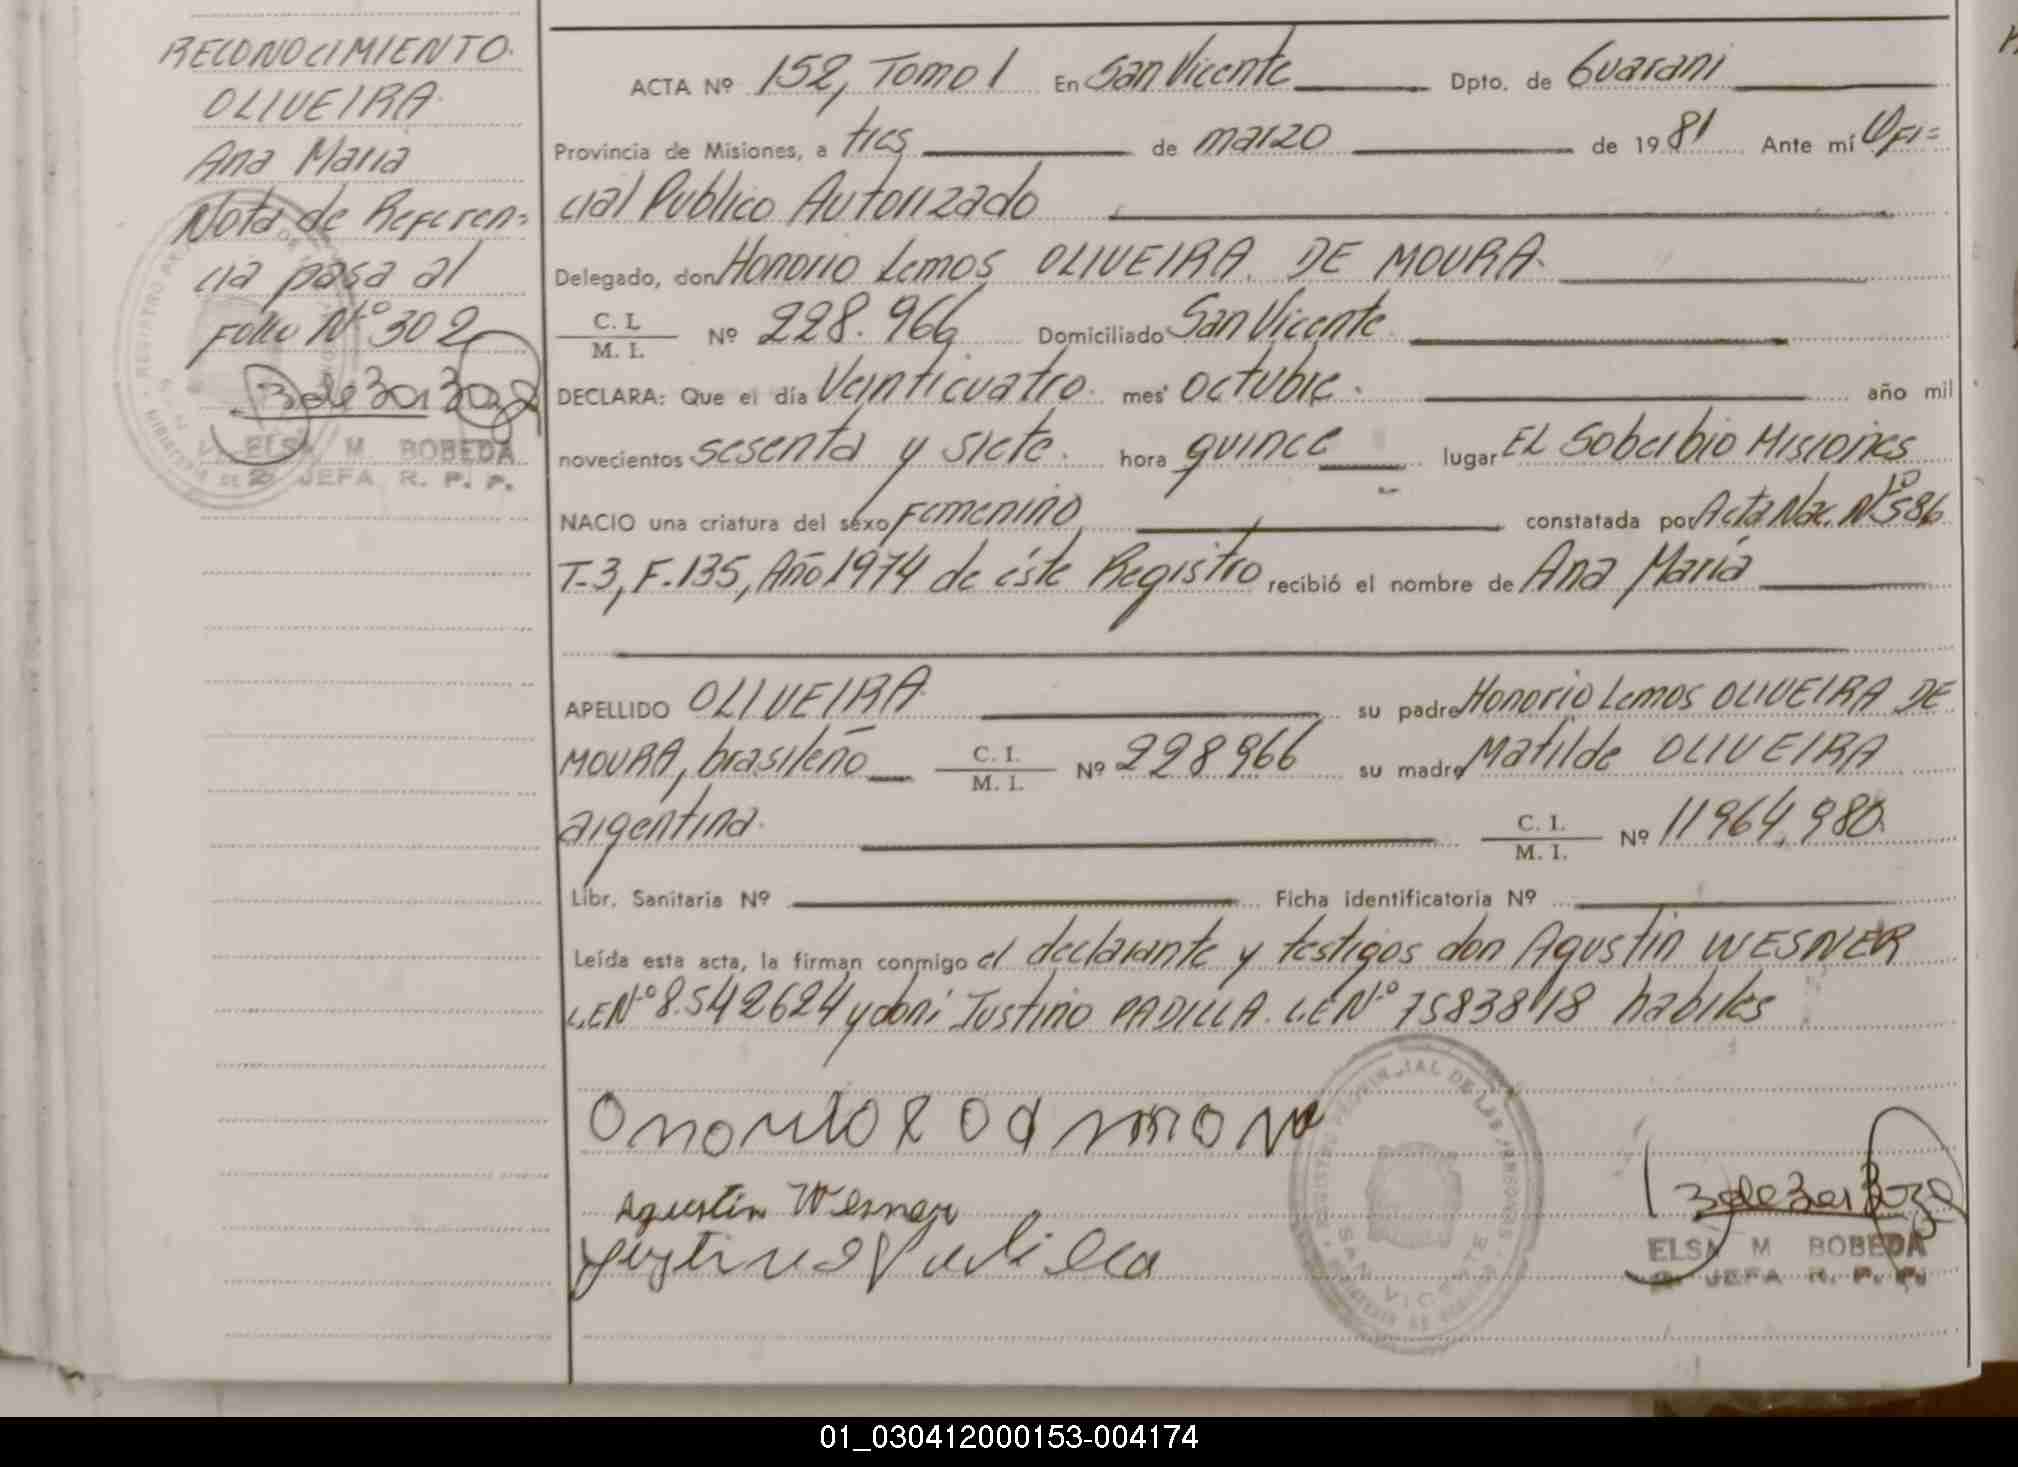 RECONOCIMIENTO.
OLIVEIRA
Ana Maria
Nota de Referen=
cia pasa al
Folio Nº 302
ELSA M BOBEDA
JEFA R. P. P.
ACTA Nº 152, Tomo I En San Vicente Dpto. de Guarani
Provincia de Misiones, a tres de marzo de 1981 Ante mí Ofi=
cial Publico Autorizado
Delegado, don Honorio Lemos OLIVEIRA DE MOURA.
C. I. / M. I. Nº 228.966 Domiciliado San Vicente
DECLARA: Que el día Veinticuatro mes octubre. año mil
novecientos sesenta y siete. hora quince lugar EL Soberbio Misiones
NACIO una criatura del sexo Femenino constatada por Acta Nac. Nº 586
T.3, F.135, Año 1974 de éste Registro recibió el nombre de Ana María
APELLIDO OLIVEIRA su padre Honorio Lemos OLIVEIRA DE
MOURA, brasileño C. I. / M. I. Nº 228966 su madre Matilde OLIVEIRA
argentina. C. I. / M. I. Nº 11964.980.
Libr. Sanitaria Nº Ficha identificatoria Nº
Leída esta acta, la firman conmigo el declarante y testigos don Agustin WESNER
L.E Nº 8.542624 y don Justino PADILLA. L.E Nº 7583818 habiles
Agustin Wesner
Justino Padilla
REGISTRO PROVINCIAL DE LAS PERSONAS
SAN VICENTE
ELSA M BOBEDA
JEFA R. P. P.
01_030412000153-004174